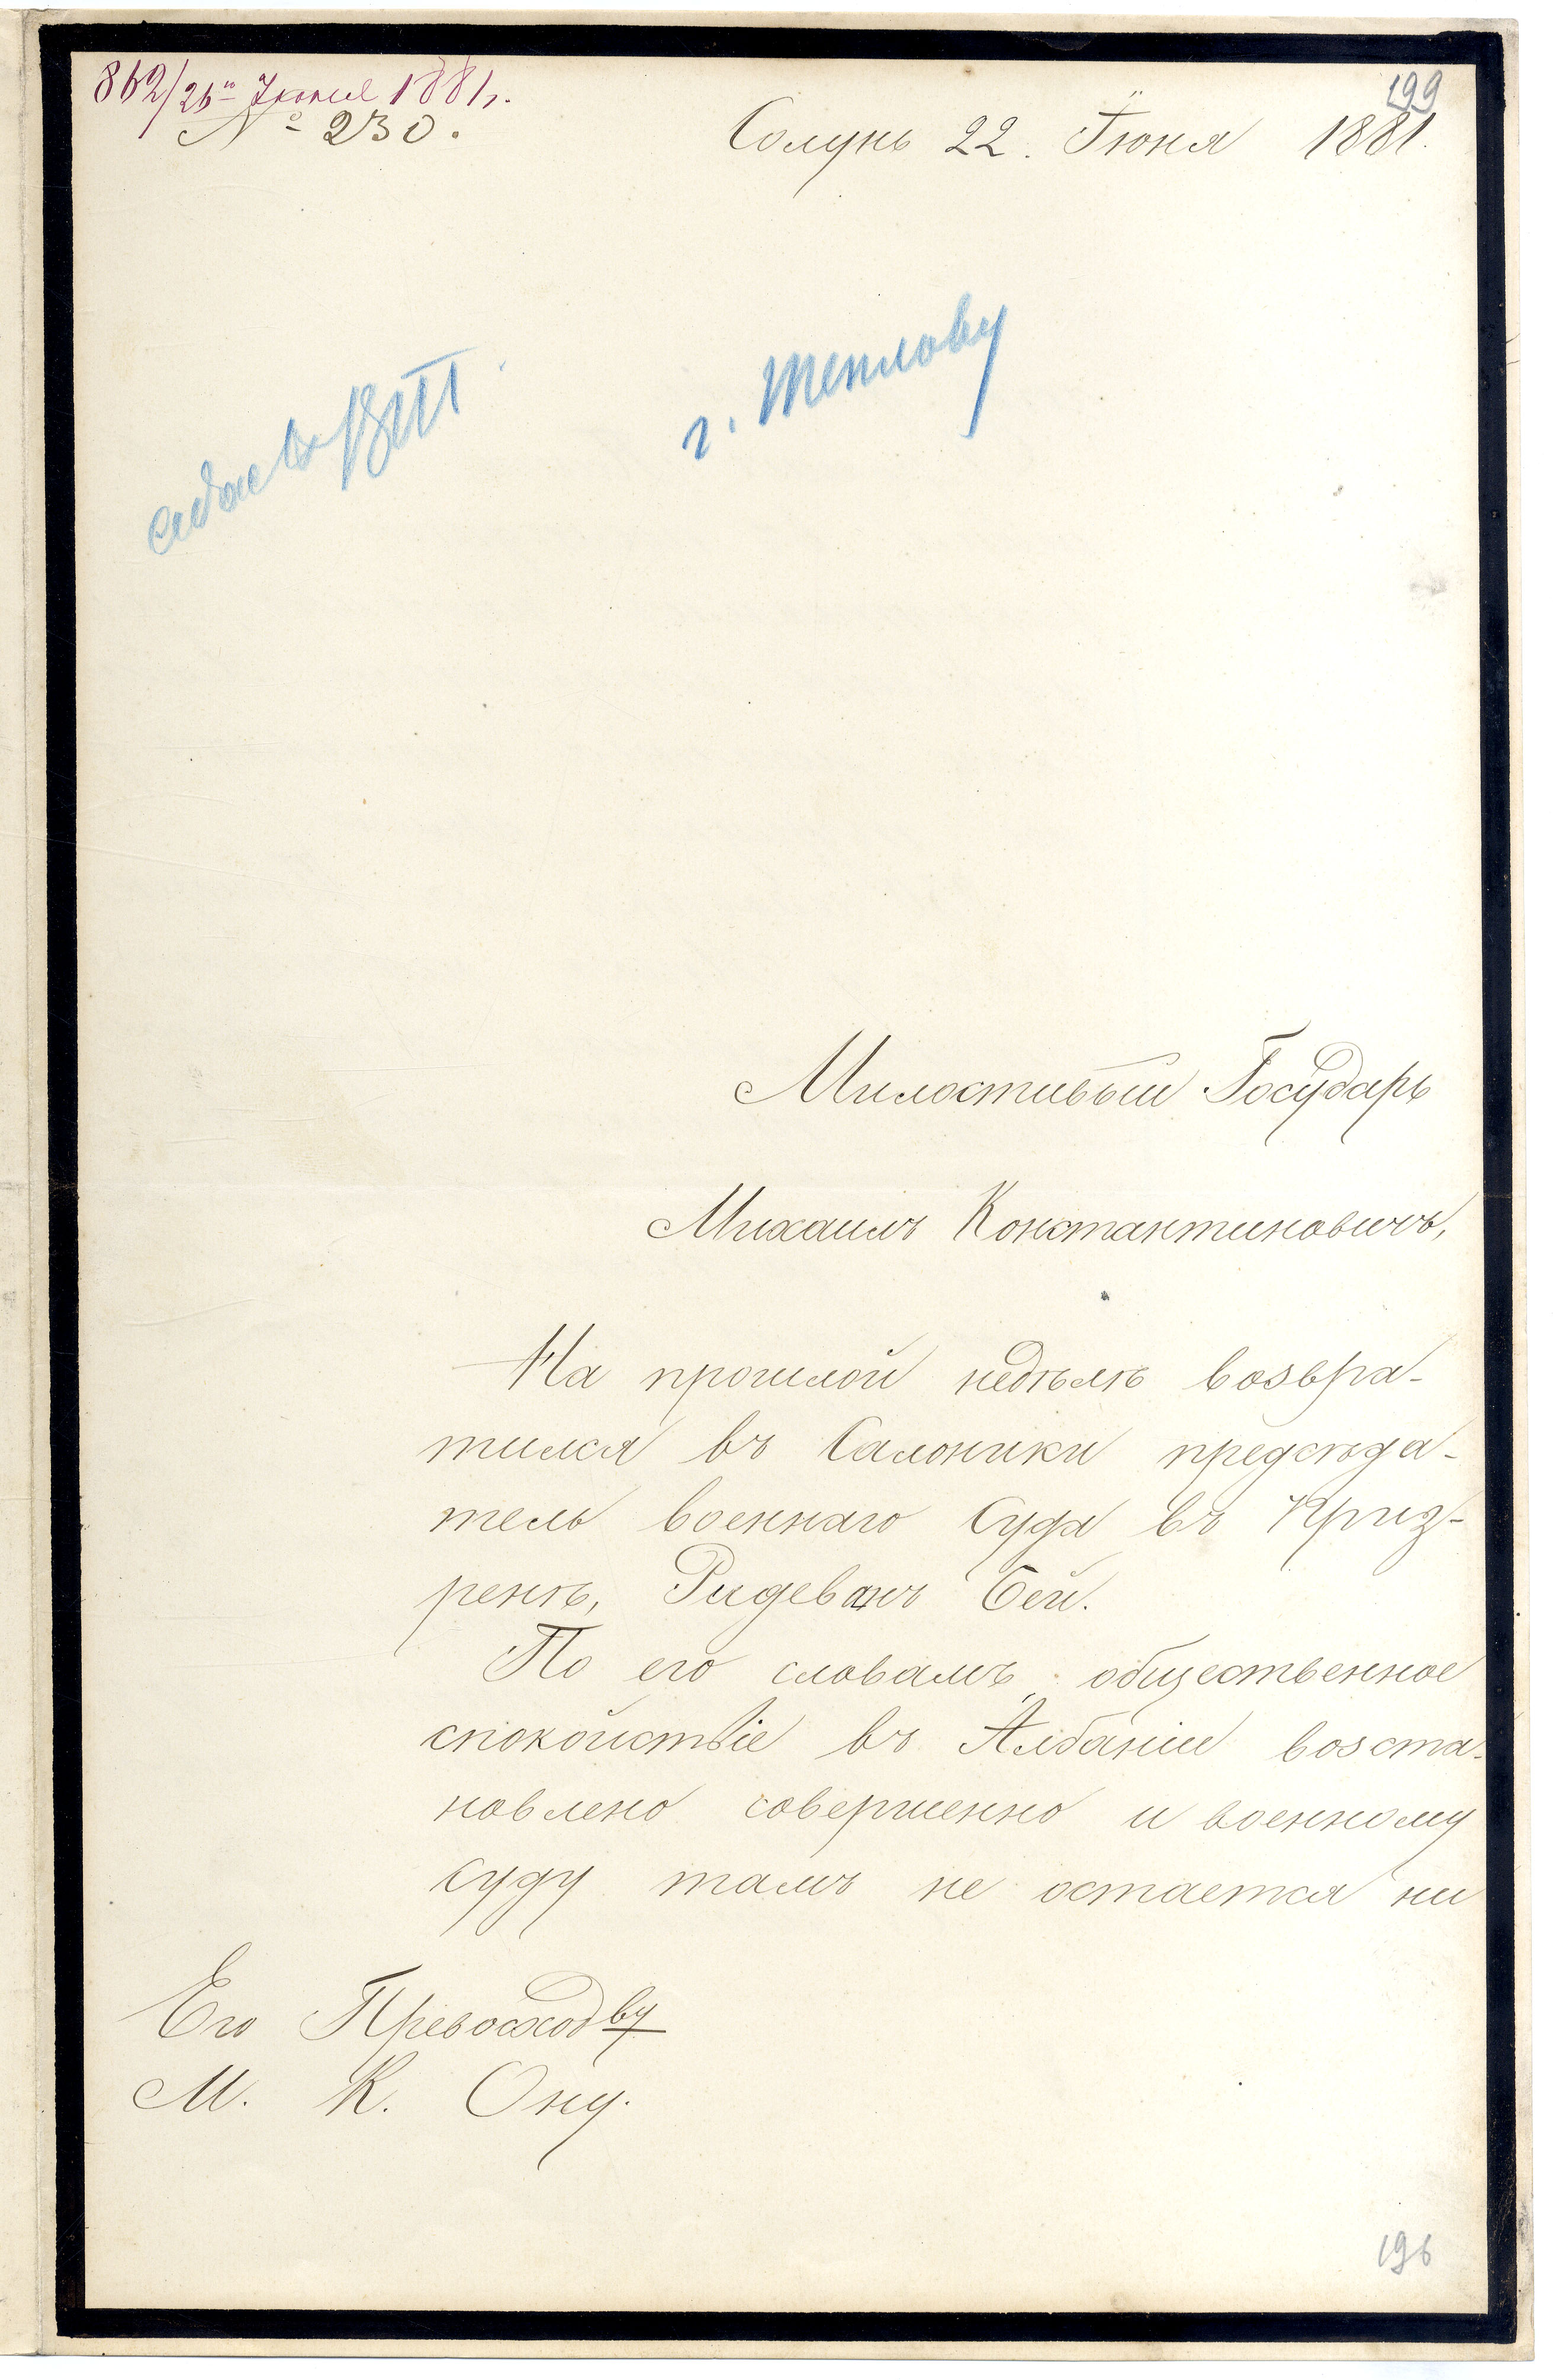 862/26го Июня 1881г.
199
№ 230.
Солунь 22. Іюня 1881.
г. Теплову
Милостивый Государь
Михаилъ Константиновичъ,
На прошлой недѣлѣ возвра-
тился въ Салоники предсѣда-
тель военнаго Суда въ Приз-
ренѣ, Ридеванъ Бей.
По его словамъ общественное
спокойствіе въ Албаніи возста-
новлено совершенно и военному
суду тамъ не остается ни
Его Превосходву
М. К. Ону.
196